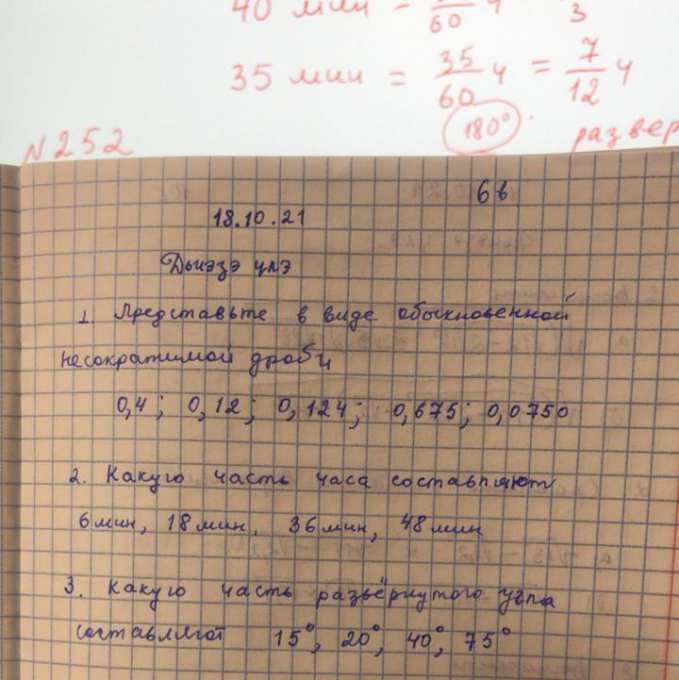 40 мин = /60 ч 3
35 мин = 35/60 ч = 7/12 ч
180°. развер
N252
6в
18.10.21
Дьиэҕэ үлэ
1. Представьте в виде обыкновенной
несократимой дроби
0,4; 0,12; 0,124; 0,675; 0,0750
2. Какую часть часа составляют
6 мин, 18 мин, 36 мин, 48 мин
3. Какую часть развёрнутого угла
составляют 15°, 20°, 40°, 75°